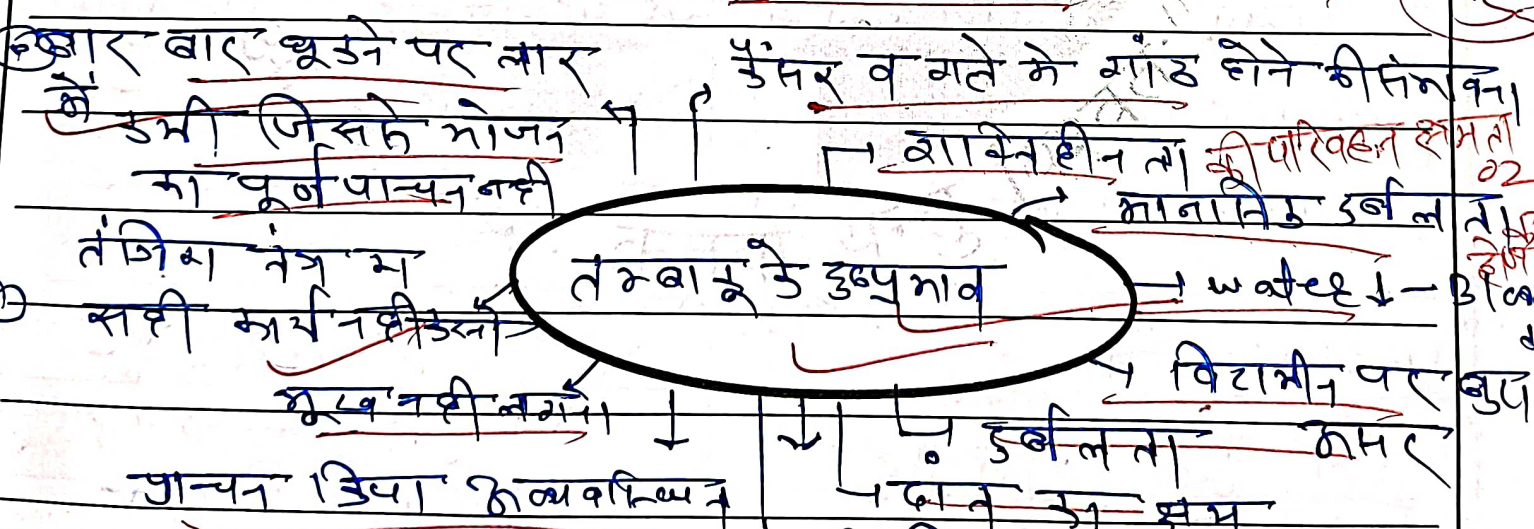 बार बार थूकने पर लार
में
कमी जिससे भोजन
का पूर्ण पाचन नही
तंत्रिका तंत्र का
सही कार्य नही करना
भूख नही लगना
पाचन क्रिया अव्यवस्थित
कैंसर व गले मे गांठ होने की संभावना
शक्तिहीनता
की परिवहन क्षमता
O2
मानसिक दुर्बलता
तम्बाकू के दुष्प्रभाव
water ↓ -
विटामीन पर
असर
दुर्बलता
दांत का क्षय